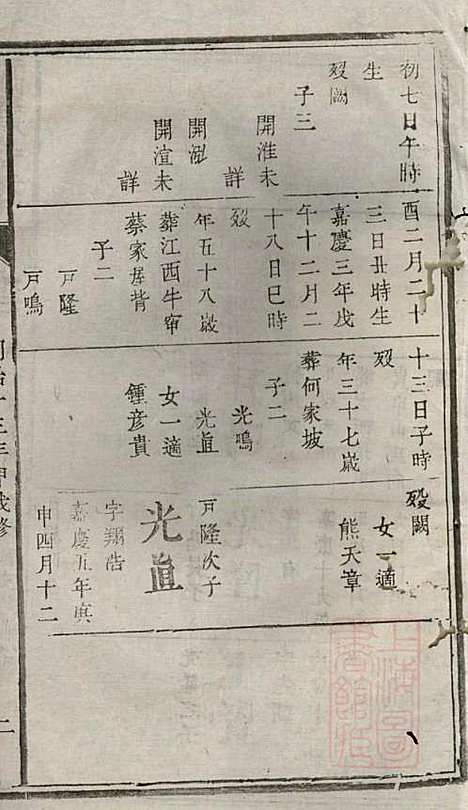 初七日午時
生
歿闕
子三
開淮未
詳
開泓
開渲未
詳
酉二月二十
三日丑時生
嘉慶三年戊
午十二月二
十八日巳時
歿
年五十八歲
葬江西牛帘
蔡家屋背
子二
戸隆
戸鳴
十三日子時
歿
年三十七歲
葬何家坡
子二
光鳴
光直
女一適
鍾彦貴
歿闕
女一適
熊天章
戸隆次子
光直
字翔浩
嘉慶五年庚
申四月十二
同治十三年甲戌修
二
上海圖
書館藏